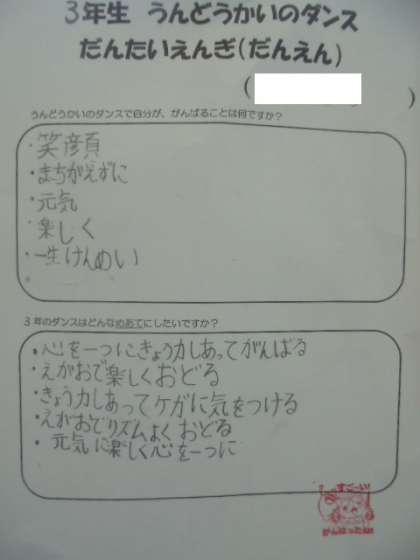 3年生 うんどうかいのダンス
だんたいえんぎ(だんえん)
( )
うんどうかいのダンスで自分が、がんばることは何ですか?
・笑顔
・まちがえずに
・元気
・楽しく
・一生けんめい
・
3年のダンスはどんなめあてにしたいですか?
・心を一つにきょう力しあってがんばる
・えがおで楽しくおどる
・きょう力しあってケガに気をつける
・えがおでリズムよくおどる
・元気に楽しく心を一つに
すごーい!